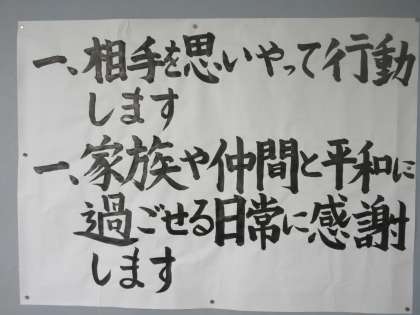 一、相手を思いやって行動
します
一、家族や仲間と平和に
過ごせる日常に感謝
します